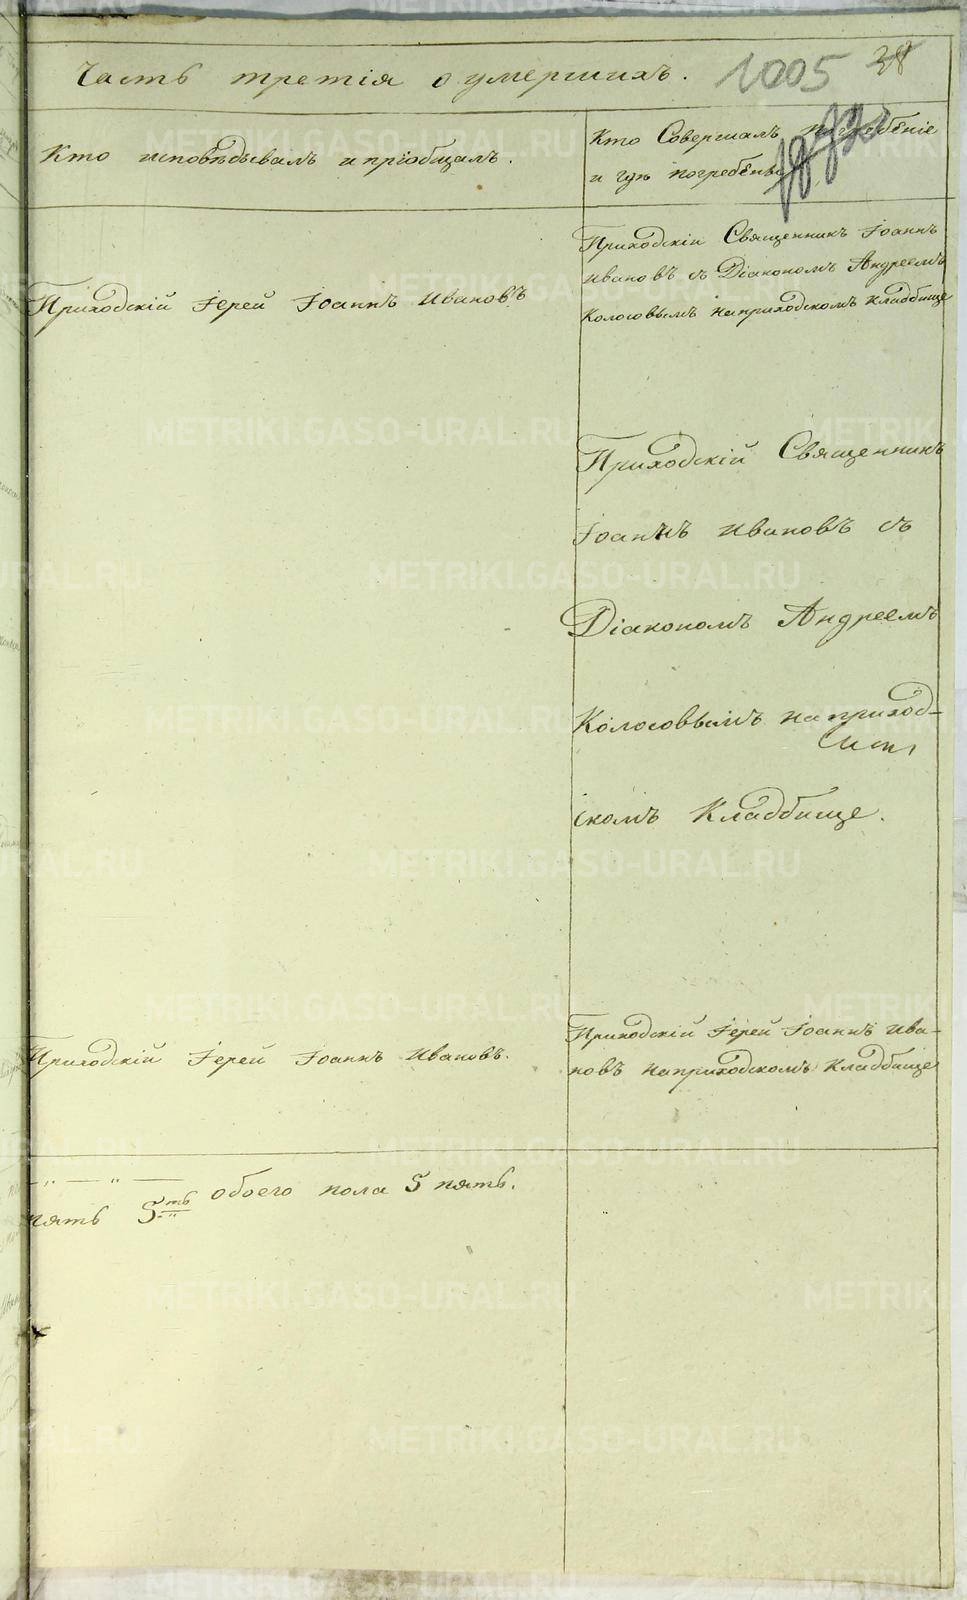 Часть третія о умершихъ. 1005 38
Кто исповѣдывалъ и пріобщалъ.
Кто Совершалъ погребеніе
и гдѣ погребены
Приходскій Священникъ Іоаннъ
Ивановъ съ Діакономъ Андреемъ
Колосовымъ на приходскомъ кладбище
Приходскій Іерей Іоаннъ Ивановъ
Приходскій Священникъ
Іоаннъ Ивановъ съ
Діакономъ Андреемъ
Колосовымъ на приход-
скомъ Кладбище.
Приходскій Іерей Іоаннъ Ивановъ.
Приходскій Іерей Іоаннъ Ива-
новъ на приходскомъ кладбище
— " — " — обоего пола 5 пять.
пять 5ть
METRIKI.GASO-URAL.RU